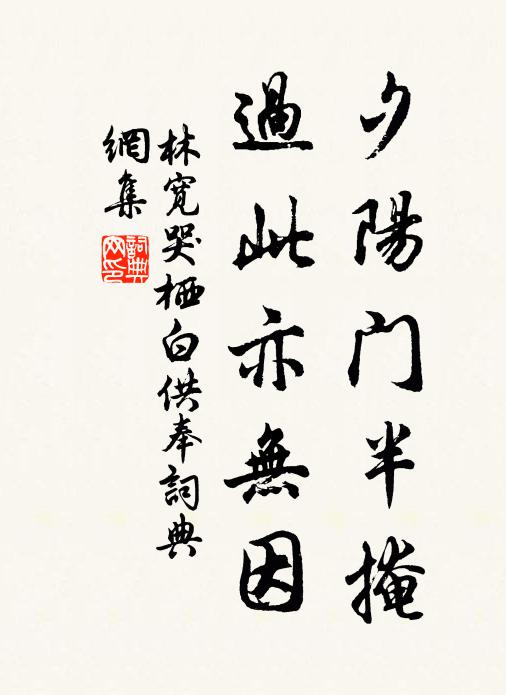 夕陽门半掩
過此亦無因
林寬哭栖白供奉詞典
網集
詞典网印